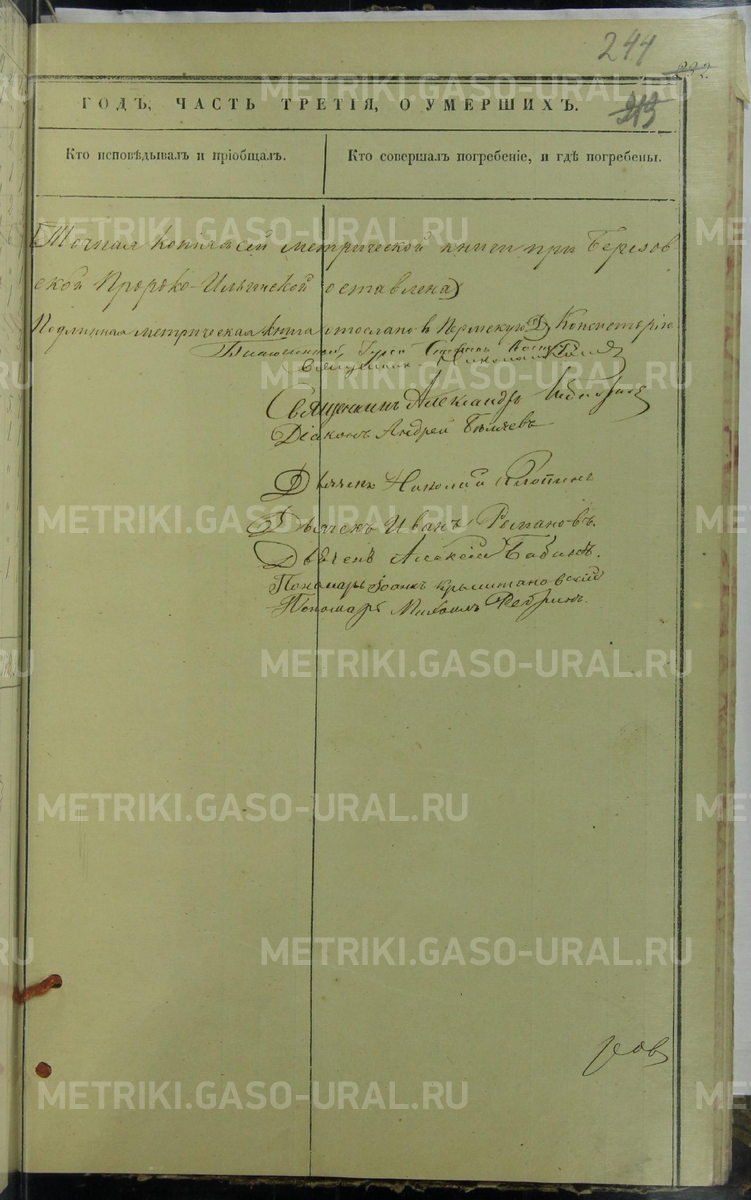 244
213
ГОДЪ, ЧАСТЬ ТРЕТІЯ, О УМЕРШИХЪ.
Кто исповѣдывалъ и пріобщалъ.
Кто совершалъ погребеніе, и гдѣ погребены.
Точная копія сей метрической книги при Березов
ской Пророко-Ильинской оставлена
Подлинная метрическая книга отослано в Пермскую Д Консисторію
Священник Николай
Священникъ Александръ
Діаконъ Андрей Бѣляевъ
Дьячекъ Николай
Дьячекъ Иванъ Романовъ.
Дьячекъ Алексій Бабинъ.
Пономарь Іоаннъ Крыштановскій
Пономарь Михаилъ
METRIKI.GASO-URAL.RU